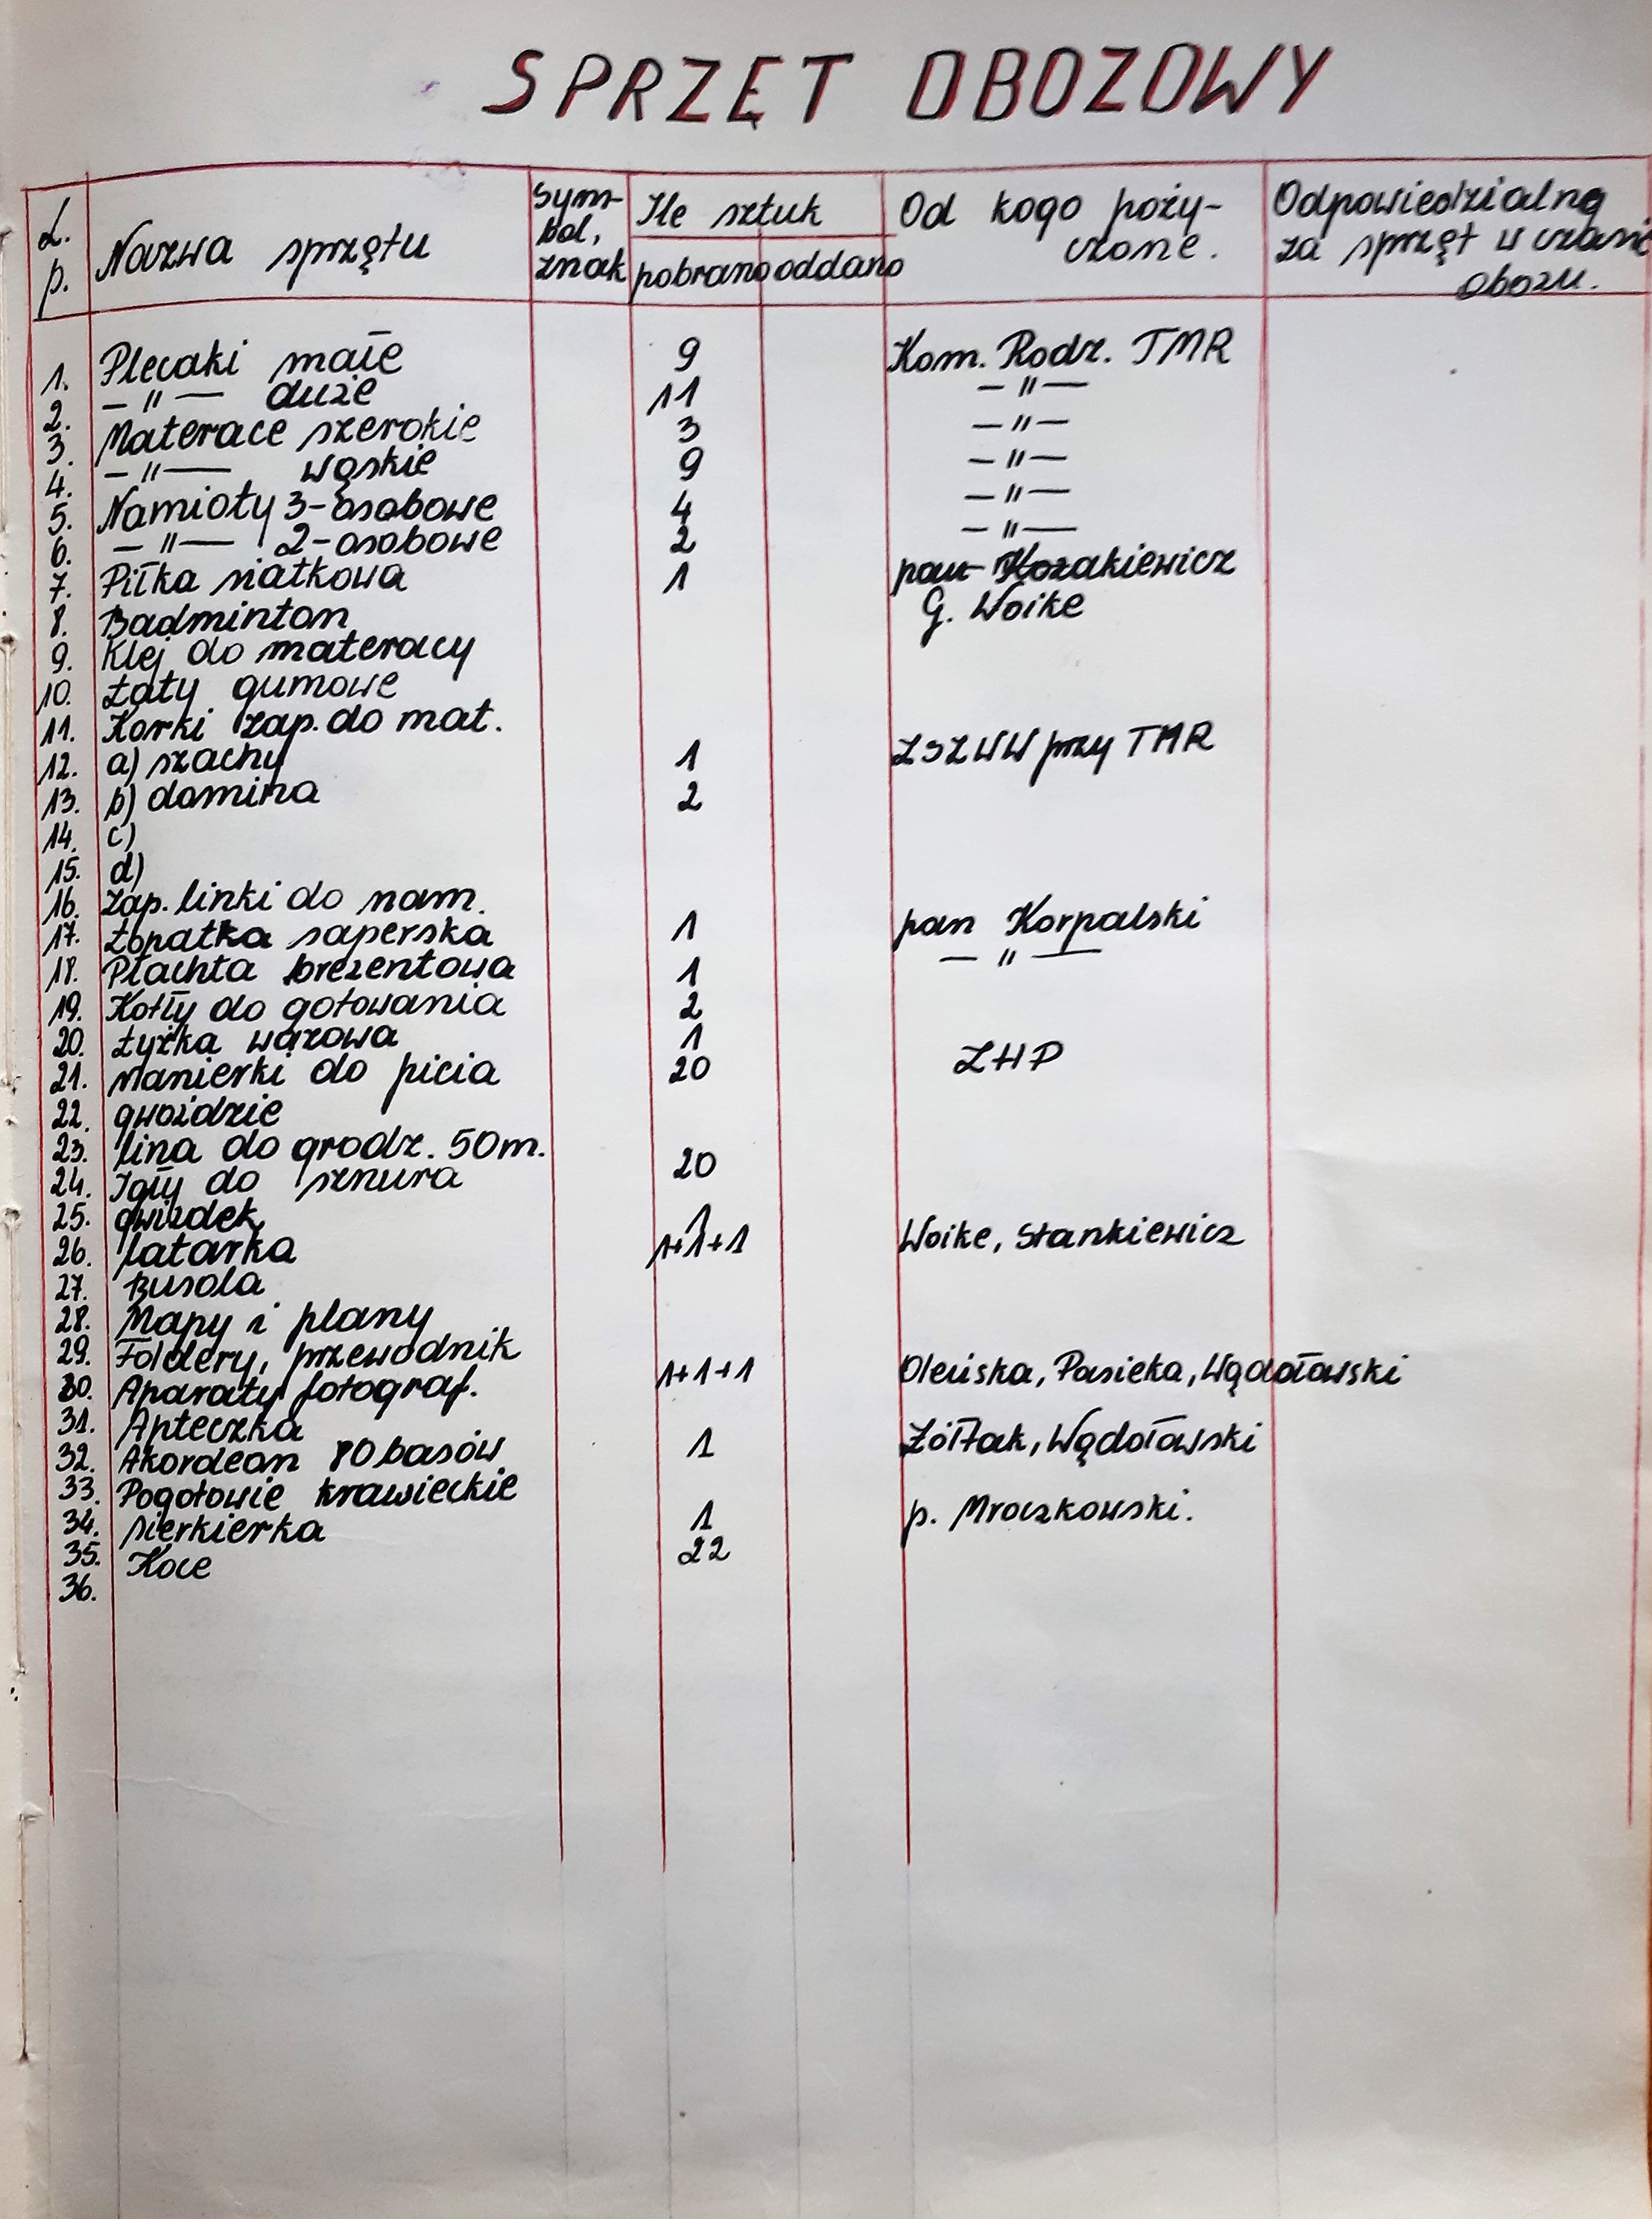 SPRZĘT OBOZOWY
L. p. Nazwa sprzętu Symbol, znak Ile sztuk pobrano oddano Od kogo poży-czone. Odpowiedzialną za sprzęt w czasie obozu.
1. Plecaki małe 9 Kom. Rodz. TMR
2. —"— duże 11 —"—
3. Materace szerokie 3 —"—
4. —"— wąskie 9 —"—
5. Namioty 3-osobowe 4 —"—
6. —"— 2-osobowe 2 —"—
7. Piłka siatkowa 1 pan Kozakiewicz
8. Badminton G. Woike
9. Klej do materacy
10. Łaty gumowe
11. Korki zap. do mat.
12. a) szachy 1 ZSZWW przy TMR
13. b) domina 2
14. c)
15. d)
16. Zap. linki do nam.
17. Łopatka saperska 1 pan Korpalski
18. Płachta brezentowa 1 —"—
19. Kotły do gotowania 2
20. Łyżka wazowa 1
21. Manierki do picia 20 ZHP
22. gwoździe
23. lina do grodz. 50m.
24. Igły do sznura 20
25. gwizdek 1
26. latarka 1+1+1 Woike, Stankiewicz
27. Busola
28. Mapy i plany
29. Foldery, przewodnik
30. Aparaty fotograf. 1+1+1 Oleńska, Pasieka, Wądołowski
31. Apteczka
32. Akordeon 80 basów 1 Żółtak, Wądołowski
33. Pogotowie krawieckie
34. sierkierka 1 p. Mroczkowski.
35. Koce 22
36.